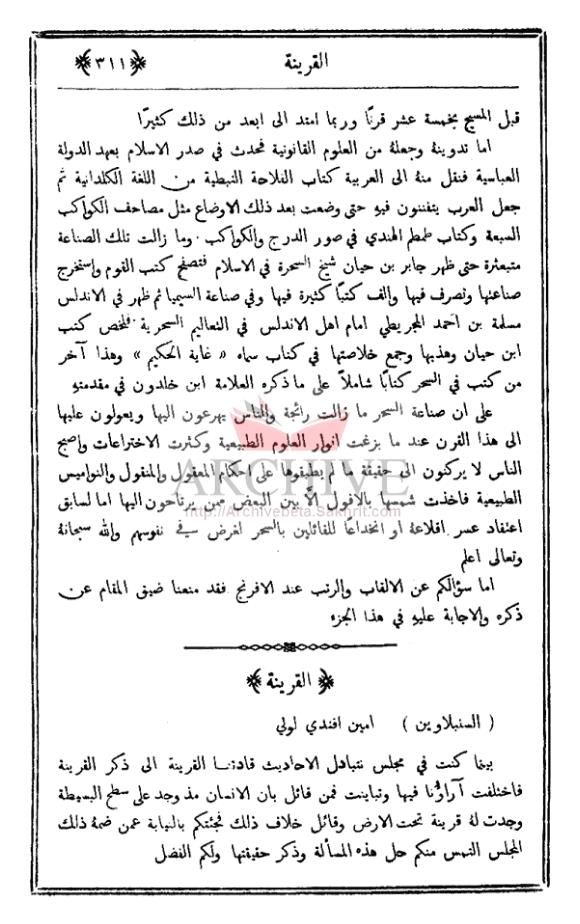 القرينة
﴿٣١١﴾
قبل المسيح بخمسة عشر قرنًا وربما امتد الى ابعد من ذلك كثيرًا
اما تدوينهُ وجعلهُ من العلوم القانونية فحدث في صدر الاسلام بعهد الدولة
العباسية فنقل منهُ الى العربية كتاب الفلاحة النبطية من اللغة الكلدانية ثم
جعل العرب يتفننون فيهِ حتى وضعت بعد ذلك الاوضاع مثل مصاحف الكواكب
السبعة وكتاب طمطم الهندي في صور الدرج والكواكب . وما زالت تلك الصناعة
متبعثرة حتى ظهر جابر بن حيان شيخ السحرة في الاسلام فتصفح كتب القوم واستخرج
صناعتها وتصرف فيها والف كتبًا كثيرة فيها وفي صناعة السيميا ثم ظهر في الاندلس
مسلمة بن احمد المجريطي امام اهل الاندلس في التعاليم السحرية فلخص كتب
ابن حيان وهذبها وجمع خلاصتها في كتاب سماه « غاية الحكيم » وهذا آخر
من كتب في السحر كتابًا شاملاً على ما ذكره العلامة ابن خلدون في مقدمتهِ
على ان صناعة السحر ما زالت رائجة والناس يهرعون اليها ويعولون عليها
الى هذا القرن عند ما بزغت انوار العلوم الطبيعية وكثرت الاختراعات واصبح
الناس لا يركنون الى حقيقة ما لم يطبقوها على احكام المعقول والمنقول والنواميس
الطبيعية فاخذت شمسها بالافول الاَّ بين البعض ممن يرتاحون اليها اما لسابق
اعتقاد عسر اقلاعهُ او انخداعًا للقائلين بالسحر لغرض في نفوسهم والله سبحانهُ
وتعالى اعلم
اما سؤالكم عن الالقاب والرتب عند الافرنج فقد منعنا ضيق المقام عن
ذكره والاجابة عليهِ في هذا الجزء
﴿ القرينة ﴾
( السنبلاوين ) امين افندي لولي
بينما كنت في مجلس نتبادل الاحاديث قادتنا القرينة الى ذكر القرينة
فاختلفت آراؤنا فيها وتباينت فمن قائل بان الانسان مذ وجد على سطح البسيطة
وجدت لهُ قرينة تحت الارض وقائل خلاف ذلك فجئتكم بالنيابة عمن ضمهُ ذلك
المجلس التمس منكم حل هذه المسألة وذكر حقيقتها ولكم الفضل
ARCHIVE
http://Archivebeta.Sakhrit.com